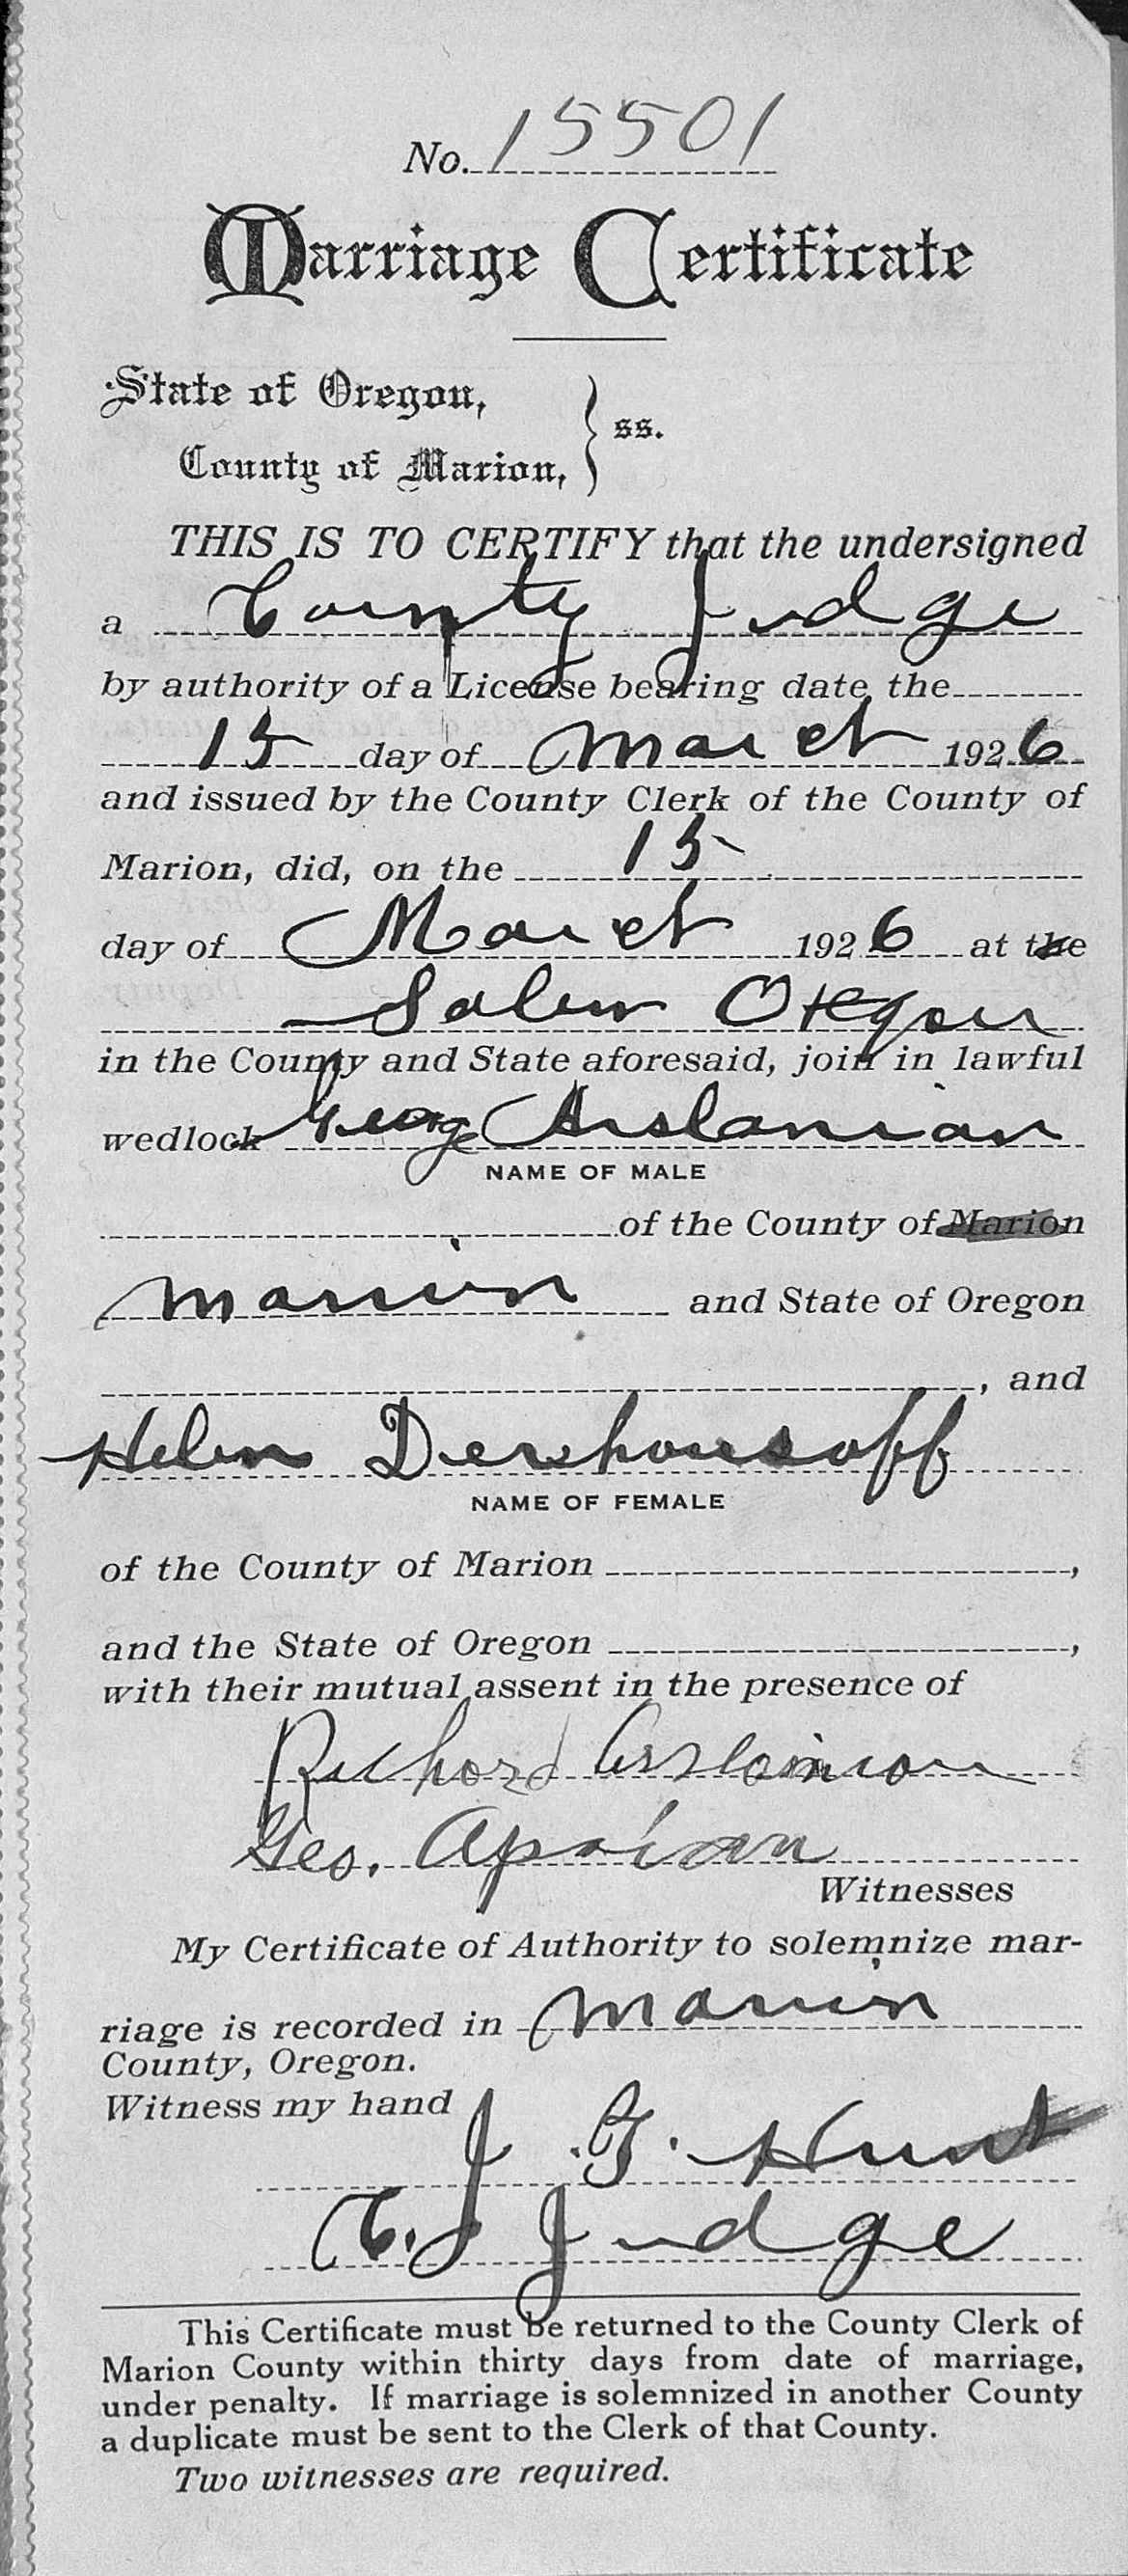 No. 15501
Marriage Certificate
State of Oregon,
County of Marion, } ss.
THIS IS TO CERTIFY that the undersigned
a County Judge
by authority of a License bearing date the
15 day of March 1926
and issued by the County Clerk of the County of
Marion, did, on the 15
day of March 1926 at the
Salem Oregon
in the County and State aforesaid, join in lawful
wedlock George Arslanian
NAME OF MALE
of the County of Marion
Marion and State of Oregon
, and
Helen Derhousoff
NAME OF FEMALE
of the County of Marion ,
and the State of Oregon ,
with their mutual assent in the presence of
Richard Arslanian
Geo. Apoian
Witnesses
My Certificate of Authority to solemnize mar-
riage is recorded in Marion
County, Oregon.
Witness my hand
J. T. Hunt
C. Judge
This Certificate must be returned to the County Clerk of
Marion County within thirty days from date of marriage,
under penalty. If marriage is solemnized in another County
a duplicate must be sent to the Clerk of that County.
Two witnesses are required.